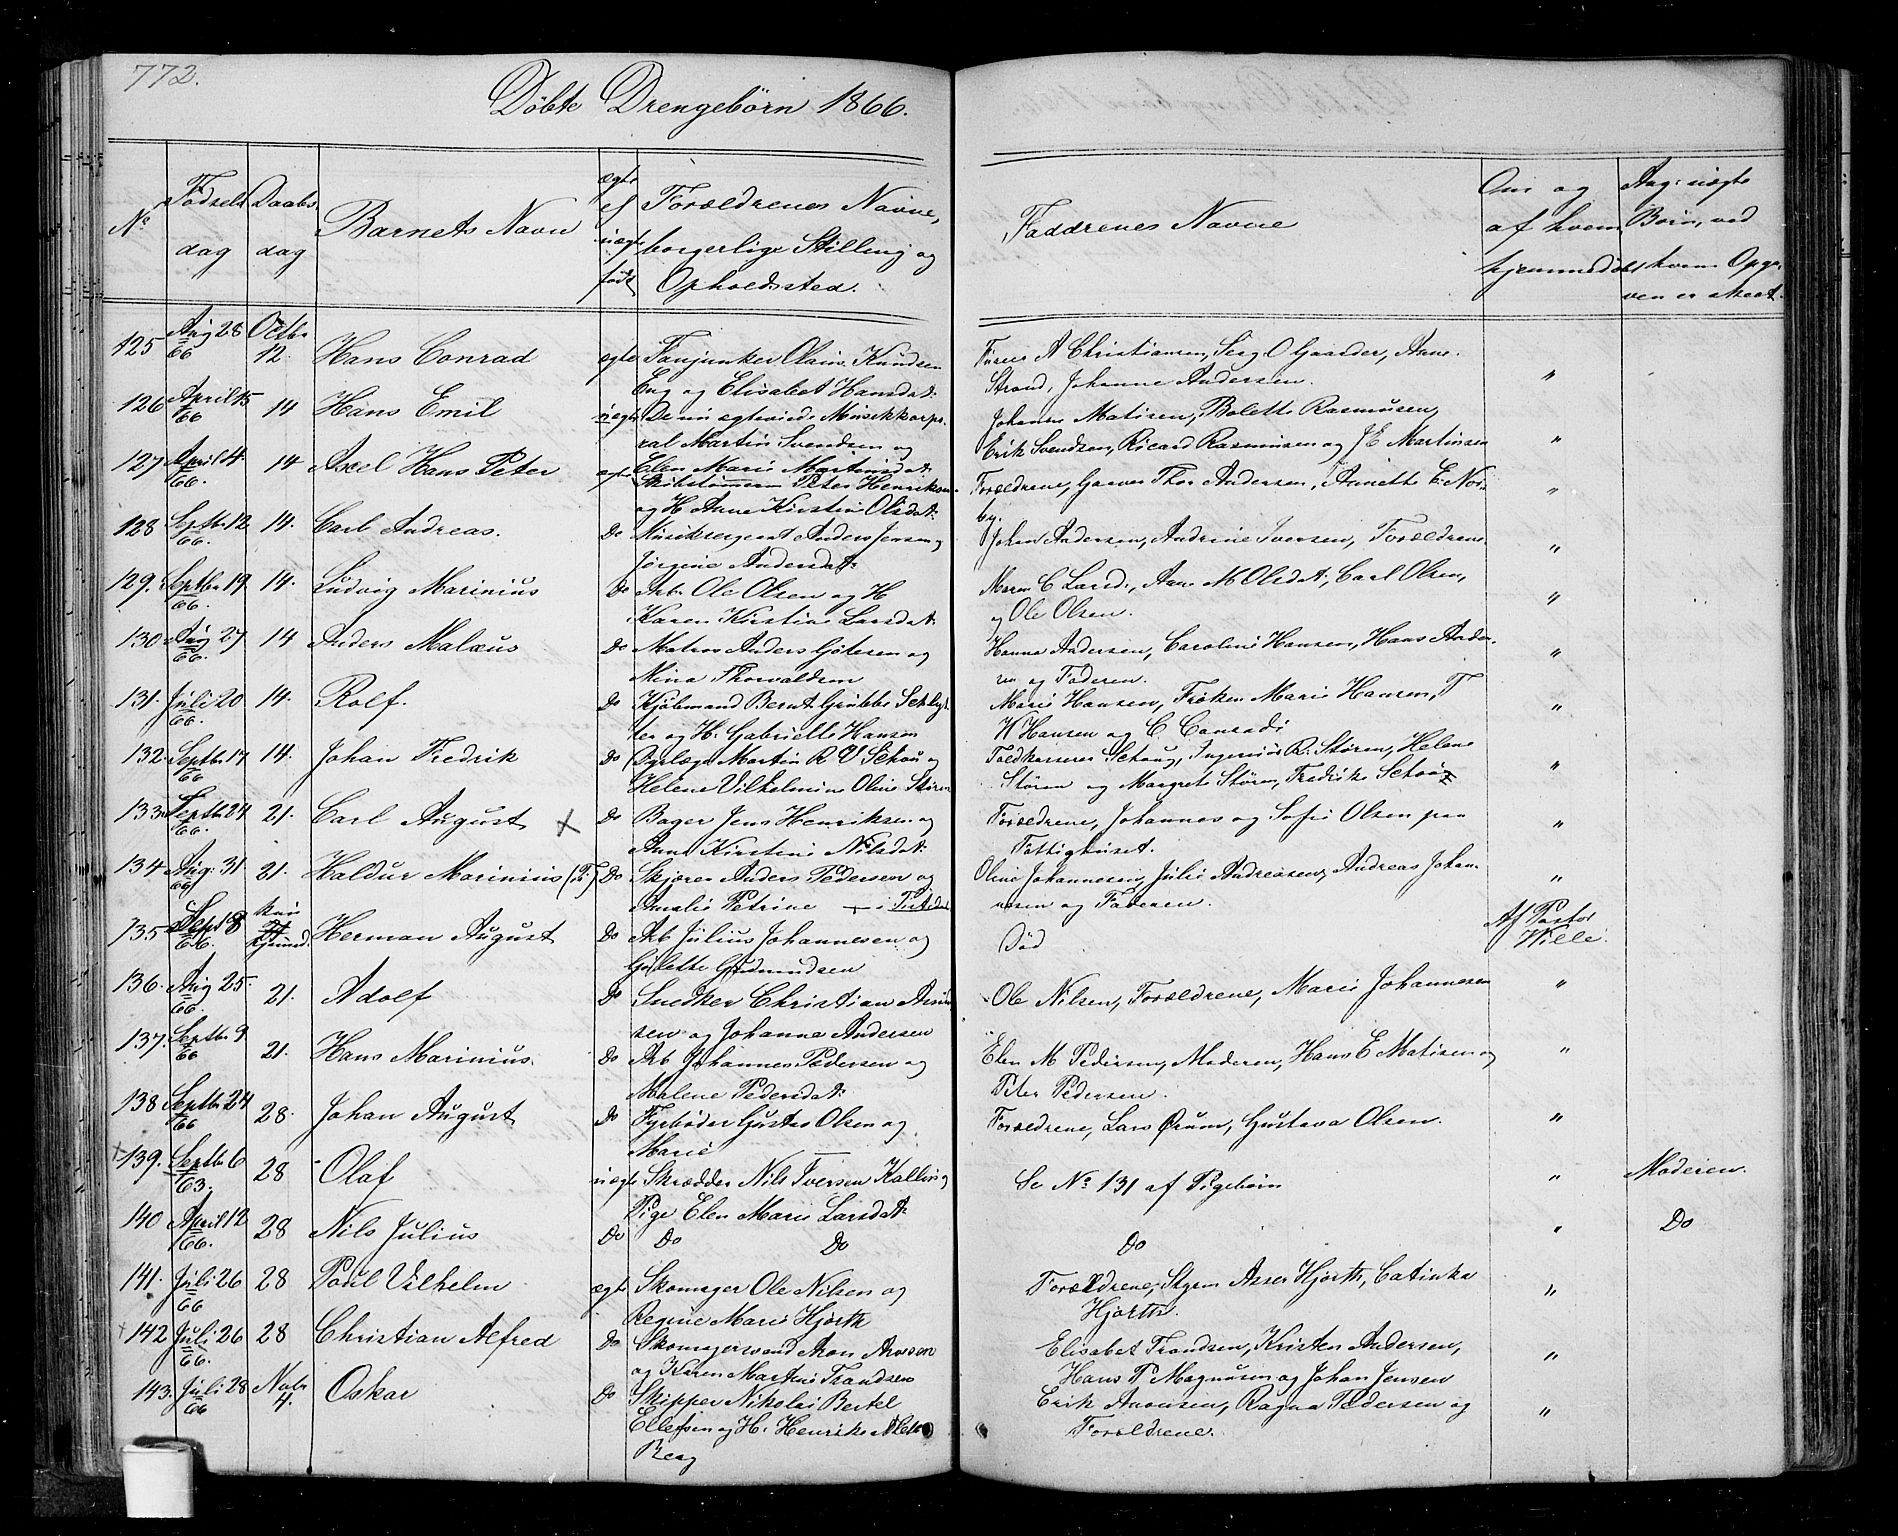 772.
Döbte Drengebörn 1866.
No
Födsels dag
Daabs dag
Barnets Navn
ægte el uægte födt
Forældrenes Navne, borgerlige Stilling og Opholdssted.
Faddrenes Navne
Om og af hvem hjemmedøbt
Ang: uægte Börn, ved hvem Opgaven er skeet.
125 Aug 28 66 Octbr 12. Hans Conrad ægte Fanjunker Olaus Knudsen
Eng og Elisabet Hansdat:
A Christiansen, Serg O Gaarder, Anne
Strand, Johanne Andersen. "
126 April 15 66 14 Hans Emil uægte De nu egteviede Musikkorpo-
ral Martin Svendsen og
Elen Marie Martinsdat:
Johannes Matisen, Bolette Rasmusen,
Erik Svendsen, Ricard Rasmusen og J E Martinsen "
127 April 4. 66. 14 Axel Hans Peter ægte Peter Henriksen
og H Anne Kirstin Olsdat:
Forældrene, Garver Thor Andersen, Annette E. Nor-
by. "
128 Septbr 12 66. 14. Carl Andreas. Do Musiksergeant Anders Jensen og
Jörgine Andersdat:
Johan Andersen, Andrine Iversen, Forældrene "
129. Septbr 19 66. 14. Ludvig Marinius Do Arb. Ole Olsen og H
Karen Kirstine Larsdat:
Maren C Larsd:, Ane M Olsdat:, Carl Olsen,
og Ole Olsen. "
130 Aug 27 66. 14 Anders Malæus Do Matros Anders Götesen og
Mina Thorvaldsen
Hanna Andersen, Caroline Hansen, Hans Ander-
sen og Faderen. "
131. Juli 20 66. 14. Rolf. Do Kjöbmand Bernt Grubbe
og H. Gabrielle Hansen
Marie Hansen, Fröken Marie Hansen, T
W Hansen og C Conradi "
132. Septbr 17 66 14. Johan Fredrik Do Martin R V Schou og
Helene Vilhelmine Oline Stören
Toldkasserer Schoug, Ingeniör R. Stören, Helene
Stören og Margrete Stören, Fredrike Schoug "
133. Septbr 24 66. 21. Carl August x Do Bager Jens Henriksen og
Anne Kirstine Nilsdat:
Forældrene, Johannes og Sofie Olsen paa
Fattighuset. "
134 Aug: 31 66 21. Haldur Marinius (T.) Do Skipper Anders Pedersen og
Amalie Petrine
Oline Johannesen, Julie Andreasen, Andreas Johan-
nesen og Faderen. "
135 Sept 8 66. kun hjemmed: Herman August Do Arb Julius Johannesen og
Gulette Gudmundsen
Död
Af Pastor
Wille.
136. Aug 25. 66. 21. Adolf Do Snedker Christian
sen og Johanna Andersen
Ole Nilsen, Forældrene, Marie Johannesen "
137. Septbr 9 66 21. Hans Marinius. Do Arb Johannes Pedersen og
Malene Pedersdat:
Elen M Pedersen, Moderen, Hans E Matisen og
Peter Pedersen. "
138 Septbr 24 66 28. Johan August Do Fyrböder Gustav Olsen og
Marie
Forældrene, Lars Ørum, Gustava Olsen. "
139. Septbr 6 63. 28 Olaf uægte Skrædder Nils Iversen Kalling
Pige Elen Marie Larsdat:
Se No 131 af Pigebörn " Moderen.
140 April 12 66. 28 Nils Julius Do Do Do Do " Do
141. Juli 26 66 28 Poul Vilhelm ægte Skomager Ole Nilsen og
Regine Marie Hjorth
Forældrene, Styrm Asser Hjorth, Catinka
Hjorth. "
142 Juli 26 66. 28 Christian Alfred Do Skomagersvend Aron Arvesen
og Karen Martine Frandsen
Elisabet Frandsen, Kristen Andersen,
Hans P Magnusen og Johan Jensen "
143. Juli 28 66 Novbr 4. Oskar Do Skipper Nikolai Bertel
Ellefsen og H. Henrikke
Berg
Erik Aronsen, Ragna Pedersen og
Forældrene. "